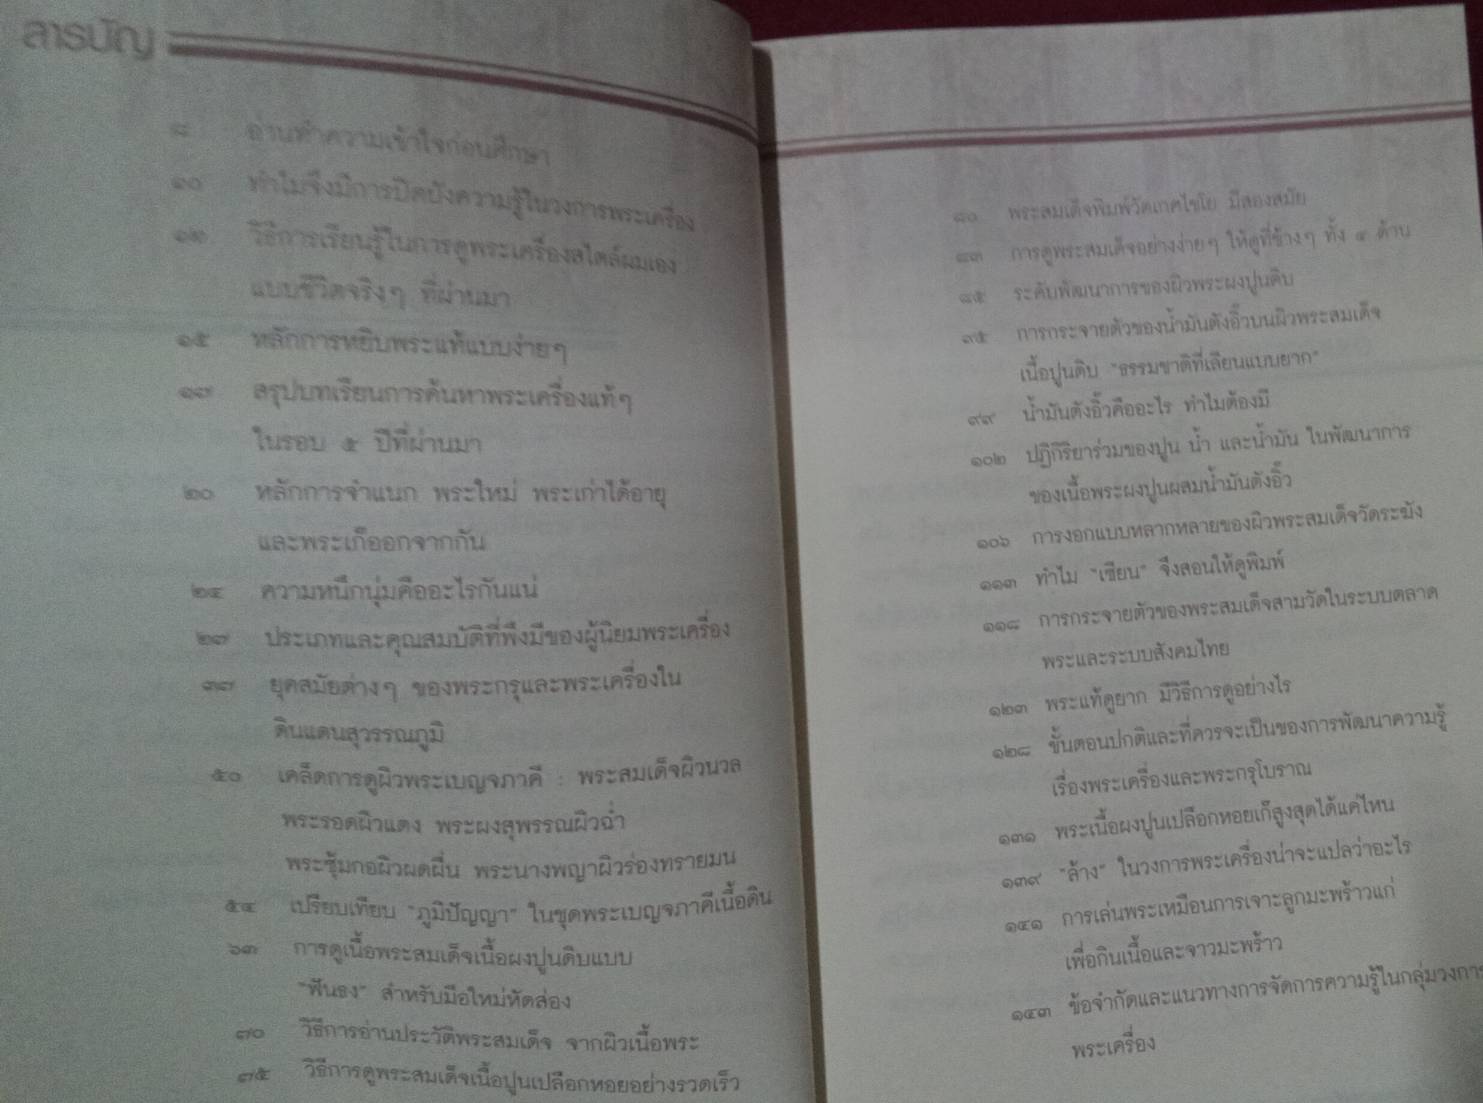 สารบัญ
๘ อ่านทำความเข้าใจก่อนศึกษา
๑๐ ทำไมจึงมีการปิดบังความรู้ในวงการพระเครื่อง
๑๒ วิธีการเรียนรู้ในการดูพระเครื่องสไตล์ผมเอง
แบบชีวิตจริงๆ ที่ผ่านมา
๑๕ หลักการหยิบพระแท้แบบง่ายๆ
๑๗ สรุปบทเรียนการค้นหาพระเครื่องแท้ๆ
ในรอบ ๕ ปีที่ผ่านมา
๒๐ หลักการจำแนก พระใหม่ พระเก่าได้อายุ
และพระเก๊ออกจากกัน
๒๔ ความหนึกนุ่มคืออะไรกันแน่
๒๗ ประเภทและคุณสมบัติที่พึงมีของผู้นิยมพระเครื่อง
๓๗ ยุคสมัยต่างๆ ของพระกรุและพระเครื่องใน
ดินแดนสุวรรณภูมิ
๕๐ เคล็ดการดูผิวพระเบญจภาคี : พระสมเด็จผิวนวล
พระรอดผิวแดง พระผงสุพรรณผิวฉ่ำ
พระซุ้มกอผิวผดผื่น พระนางพญาผิวร่องทรายมน
๕๔ เปรียบเทียบ "ภูมิปัญญา" ในชุดพระเบญจภาคีเนื้อดิน
๖๓ การดูเนื้อพระสมเด็จเนื้อผงปูนดิบแบบ
"ฟันธง" สำหรับมือใหม่หัดส่อง
๗๐ วิธีการอ่านประวัติพระสมเด็จ จากผิวเนื้อพระ
๗๕ วิธีการดูพระสมเด็จเนื้อปูนเปลือกหอยอย่างรวดเร็ว
๘๐ พระสมเด็จพิมพ์วัดเกศไชโย มีสองสมัย
๘๓ การดูพระสมเด็จอย่างง่ายๆ ให้ดูที่ข้างๆ ทั้ง ๔ ด้าน
๘๕ ระดับพัฒนาการของผิวพระผงปูนดิบ
๙๕ การกระจายตัวของน้ำมันตังอิ๊วบนผิวพระสมเด็จ
เนื้อปูนดิบ "ธรรมชาติที่เลียนแบบยาก"
๙๙ น้ำมันตังอิ๊วคืออะไร ทำไมต้องมี
๑๐๒ ปฏิกิริยาร่วมของปูน น้ำ และน้ำมัน ในพัฒนาการ
ของเนื้อพระผงปูนผสมน้ำมันตังอิ๊ว
๑๐๖ การงอกแบบหลากหลายของผิวพระสมเด็จวัดระฆัง
๑๑๓ ทำไม "เซียน" จึงสอนให้ดูพิมพ์
๑๑๘ การกระจายตัวของพระสมเด็จสามวัดในระบบตลาด
พระและระบบสังคมไทย
๑๒๓ พระแท้ดูยาก มีวิธีการดูอย่างไร
๑๒๘ ขั้นตอนปกติและที่ควรจะเป็นของการพัฒนาความรู้
เรื่องพระเครื่องและพระกรุโบราณ
๑๓๑ พระเนื้อผงปูนเปลือกหอยเก๊สูงสุดได้แค่ไหน
๑๓๙ "ล้าง" ในวงการพระเครื่องน่าจะแปลว่าอะไร
๑๔๑ การเล่นพระเหมือนการเจาะลูกมะพร้าวแก่
เพื่อกินเนื้อและจาวมะพร้าว
๑๔๓ ข้อจำกัดและแนวทางการจัดการความรู้ในกลุ่มวงการ
พระเครื่อง